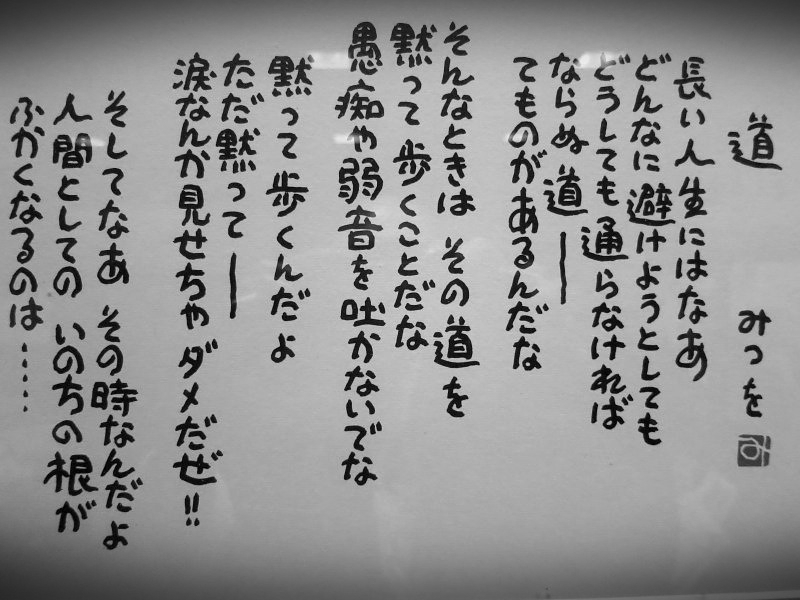 道
みつを
み
長い人生にはなあ
どんなに避けようとしても
どうしても通らなければ
ならぬ道―
てものがあるんだな
そんなときは その道を
黙って歩くことだな
愚痴や弱音を吐かないでな
黙って歩くんだよ
ただ黙って―
涙なんか見せちゃダメだぜ!!
そしてなあ その時なんだよ
人間としての いのちの根が
ふかくなるのは……